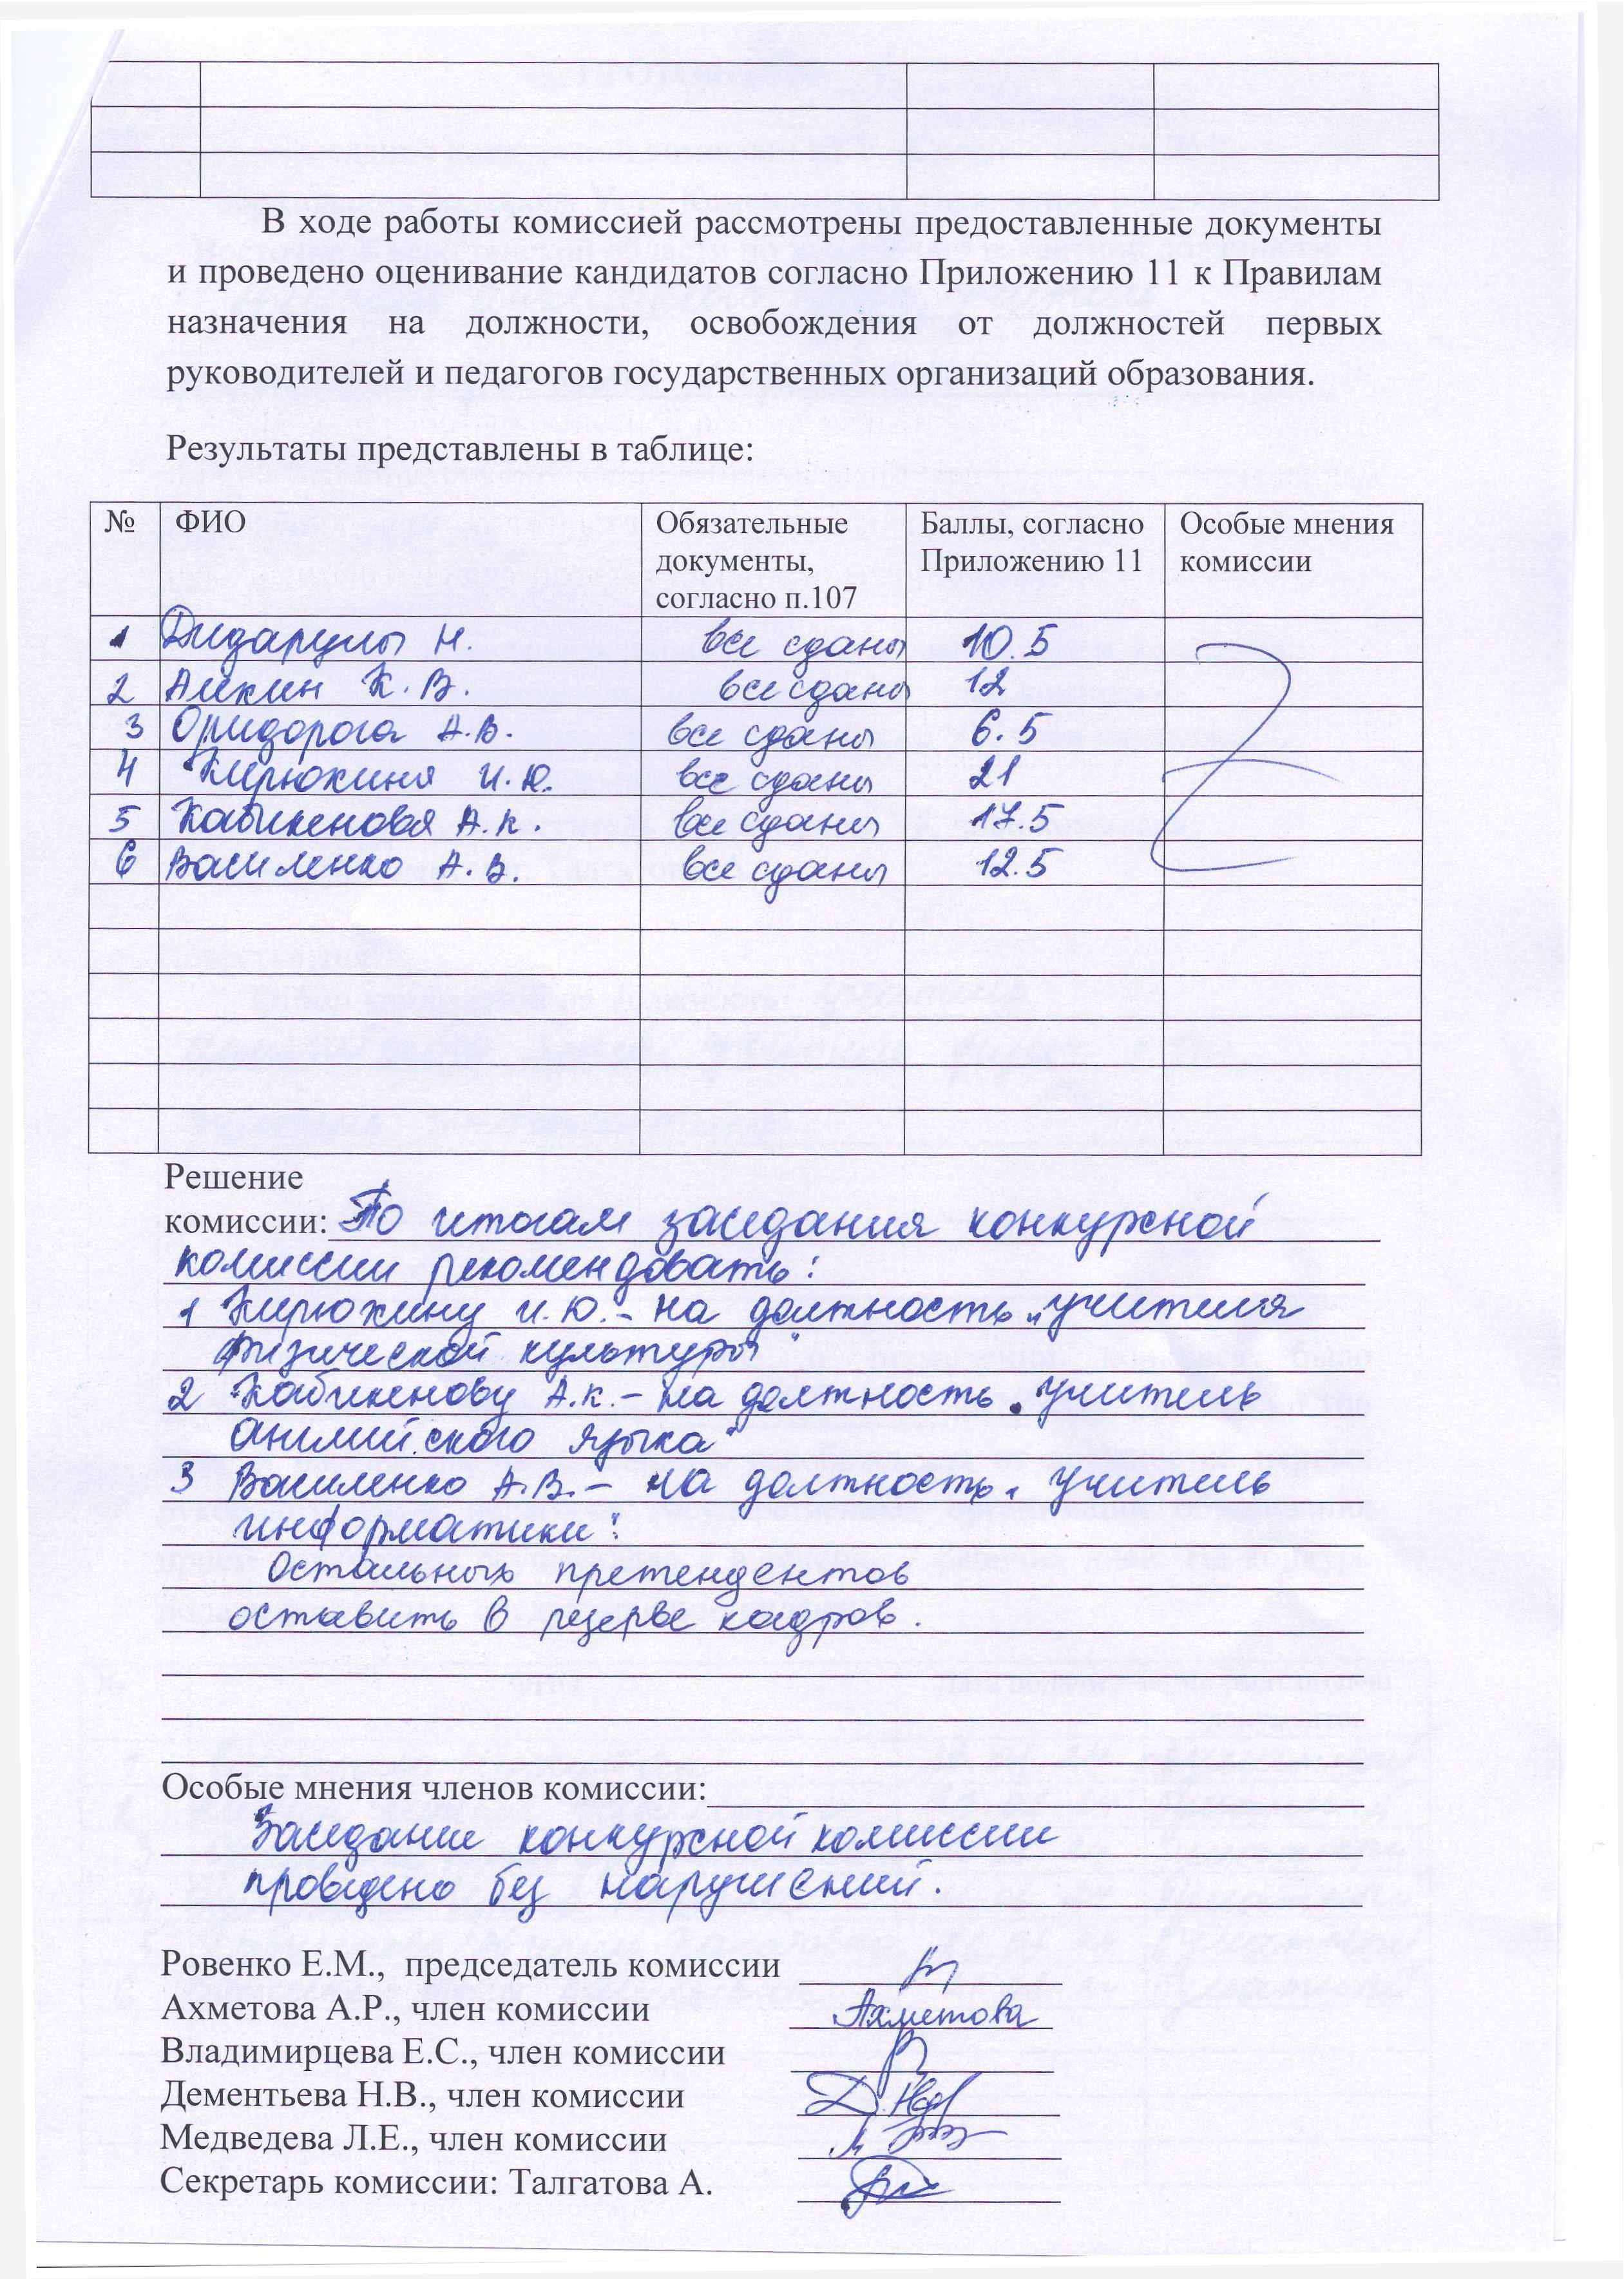 В ходе работы комиссией рассмотрены предоставленные документы
и проведено оценивание кандидатов согласно Приложению 11 к Правилам
назначения на должности, освобождения от должностей первых
руководителей и педагогов государственных организаций образования.
Результаты представлены в таблице:
№ ФИО Обязательные документы, согласно п.107 Баллы, согласно Приложению 11 Особые мнения комиссии
1 Дидарулы Н. все сданы 10.5
2 Аикин К. В. все сданы 12
3 Оридорога А.В. все сданы 6.5
4 Кирюхина И.Ю. все сданы 21
5 Кабикенова А.К. все сданы 17.5
6 Василенко А.В. все сданы 12.5
Решение
комиссии: По итогам заседания конкурсной
комиссии рекомендовать:
1 Кирюхину И.Ю. - на должность „учителя
физической культуры"
2 Кабикенову А.К. - на должность „учитель
английского языка"
3 Василенко А.В. - на должность „учитель
информатики".
Остальных претендентов
оставить в резерве кадров.
Особые мнения членов комиссии:
Заседание конкурсной комиссии
проведено без нарушений.
Ровенко Е.М., председатель комиссии
Ахметова А.Р., член комиссии Ахметова
Владимирцева Е.С., член комиссии
Дементьева Н.В., член комиссии
Медведева Л.Е., член комиссии
Секретарь комиссии: Талгатова А.